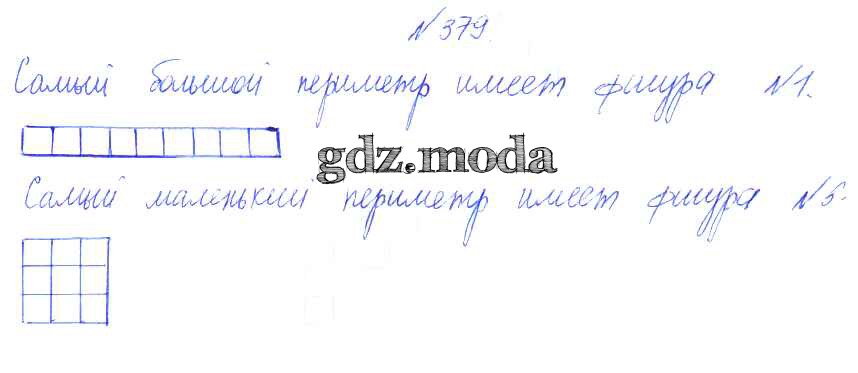 №379.
Самый большой периметр имеет фигура №1.
gdz.moda
Самый маленький периметр имеет фигура №5.